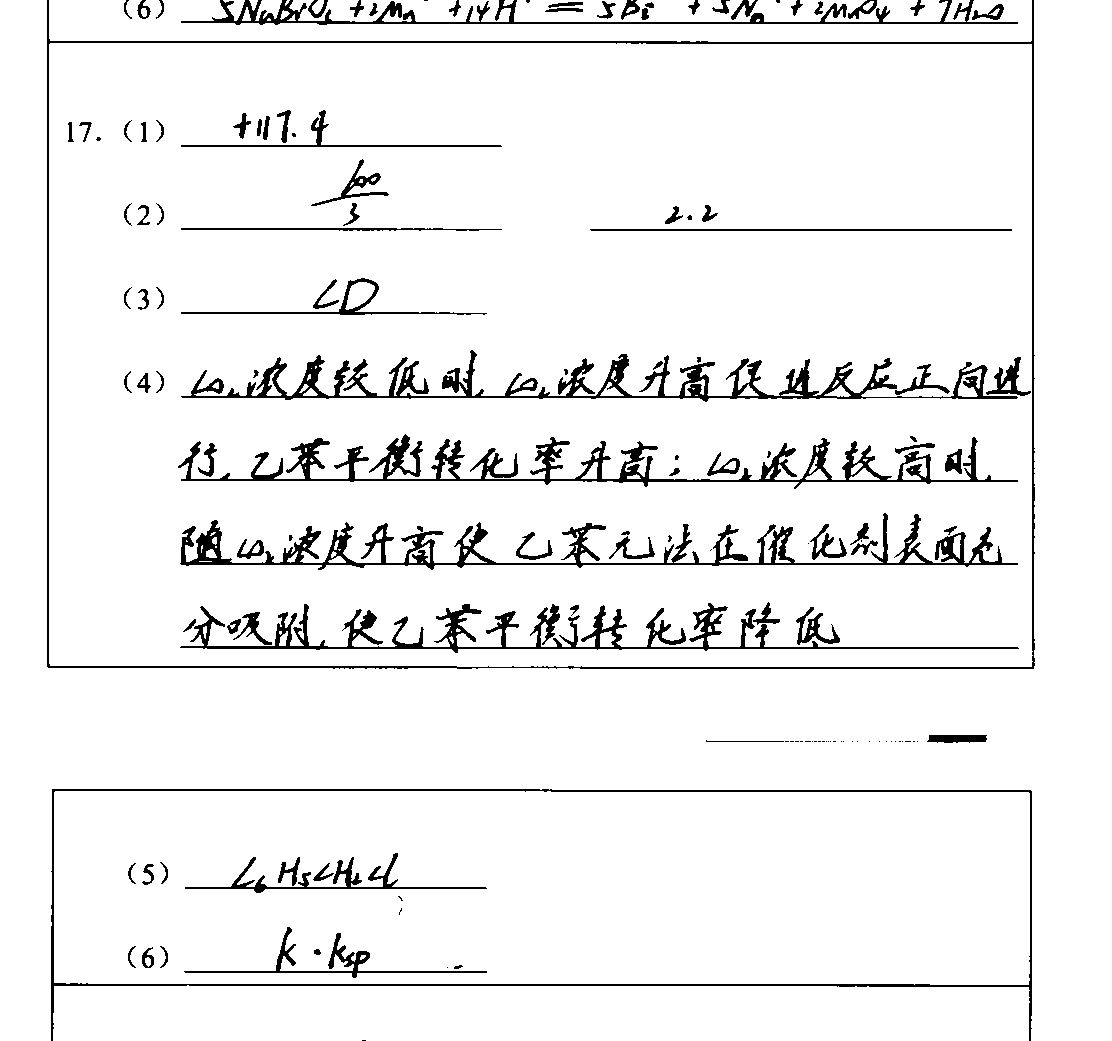 (6) 5NaBiO₃ + 2Mn²⁺ + 14H⁺ = 5Bi³⁺ + 5Na⁺ + 2MnO₄⁻ + 7H₂O
17. (1) +117.4
(2) 100/3 2.2
(3) CD
(4) CO₂浓度较低时, CO₂浓度升高促进反应正向进
行, 乙苯平衡转化率升高; CO₂浓度较高时,
随CO₂浓度升高使乙苯无法在催化剂表面充
分吸附, 使乙苯平衡转化率降低
(5) C₆H₅CH₂Cl
(6) K·Ksp